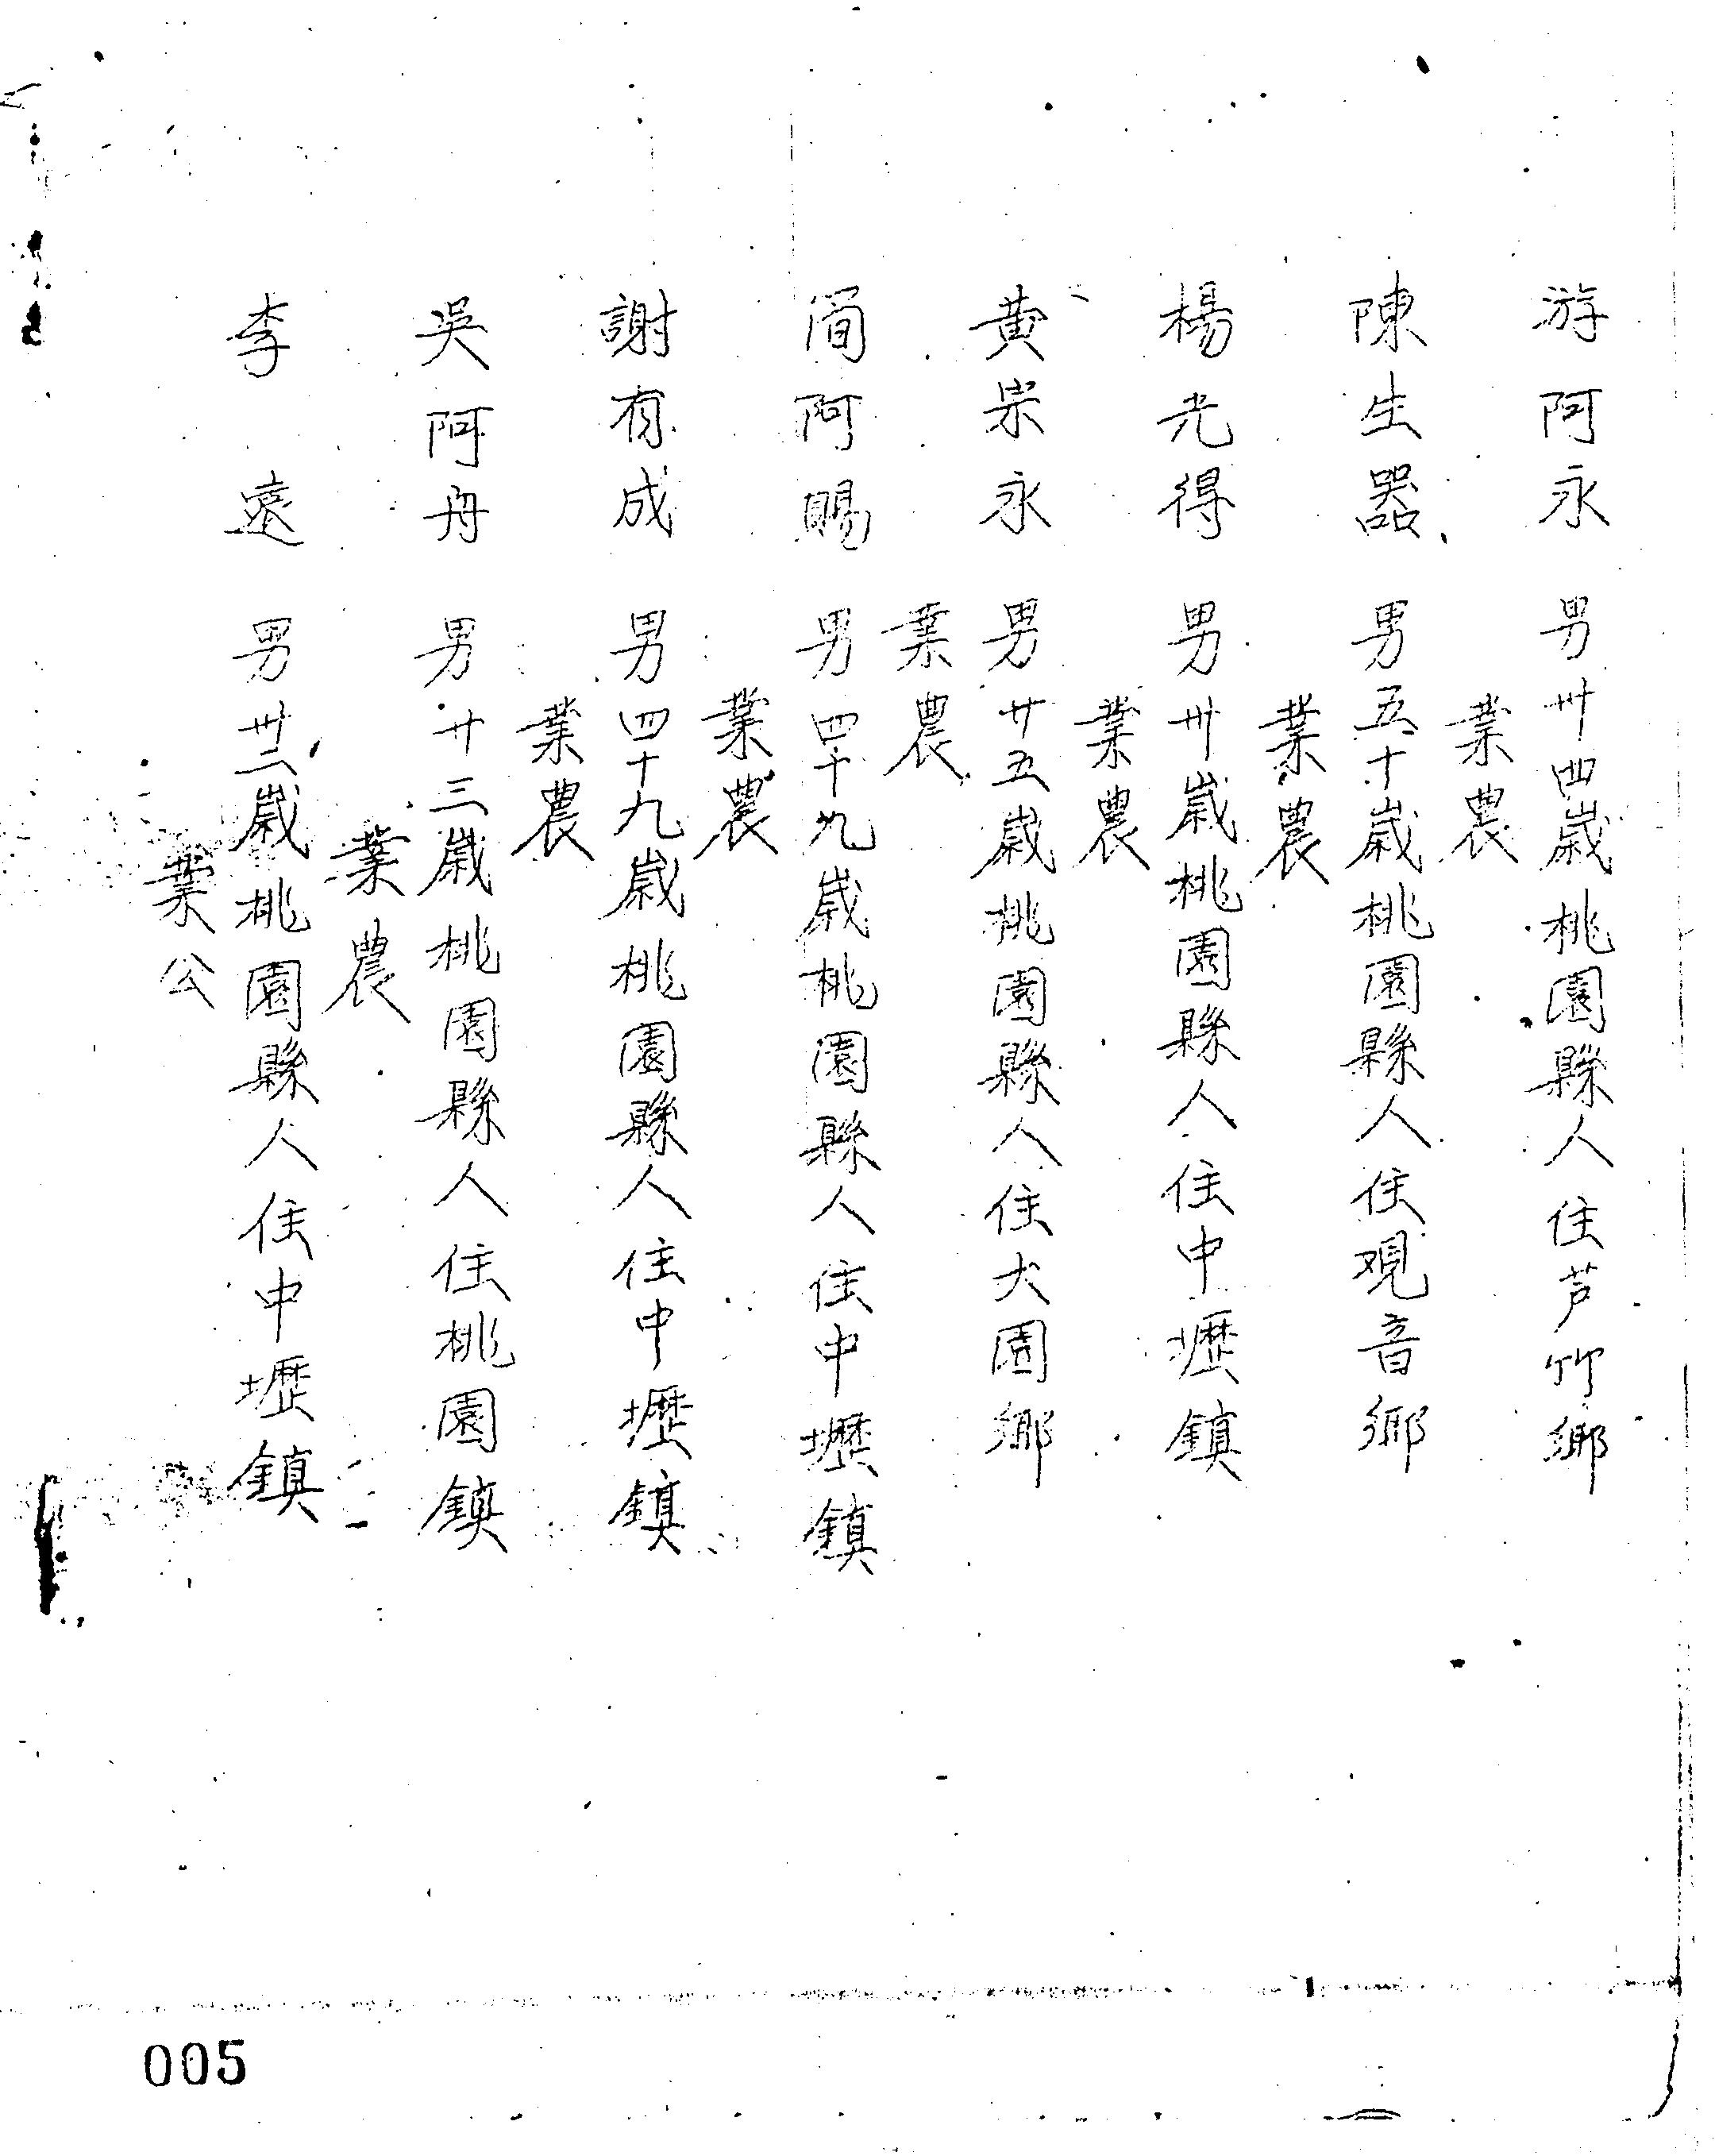 游阿永 男卅四歲桃園縣人住芦竹鄉
業農
陳生器 男五十歲桃園縣人住观音鄉
業農
楊光得 男卅歲桃園縣人住中壢鎮
業農
黃崇永 男廿五歲桃園縣人住大园鄉
業農
简阿賜 男四十九歲桃園縣人住中壢鎮
業農
謝有成 男四十九歲桃園縣人住中壢鎮
業農
吳阿舟 男廿三歲桃園縣人住桃園鎮
業農
李遠 男卅二歲桃園縣人住中壢鎮
業公
005